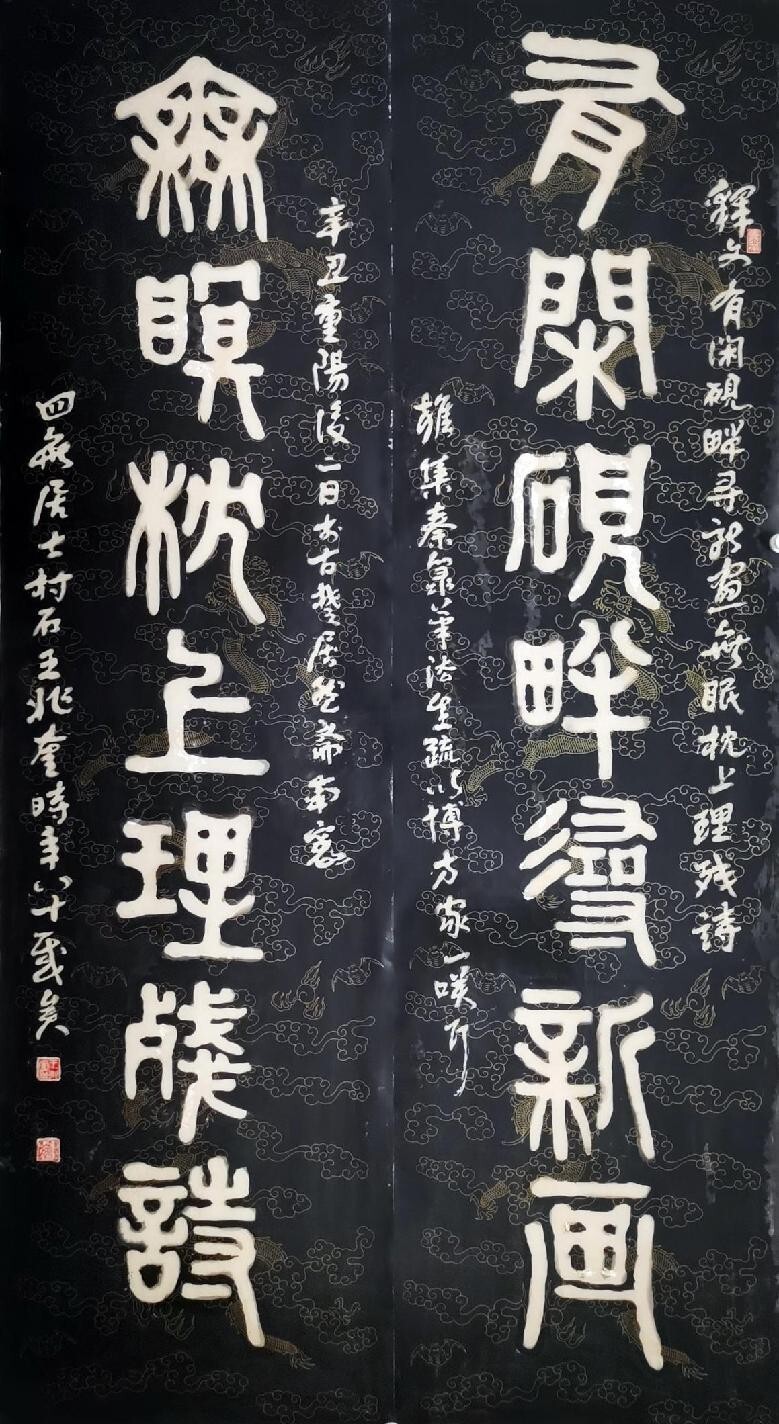 释文有闲砚畔寻新画無眠枕上理残诗
有閑硯畔尋新画
雜集秦篆筆法生疏以博方家一咲耳
辛丑重陽後二日於古楚居 斋南窗
無瞑枕上理殘詩
四無居士村石王兆奎時年八十歲矣